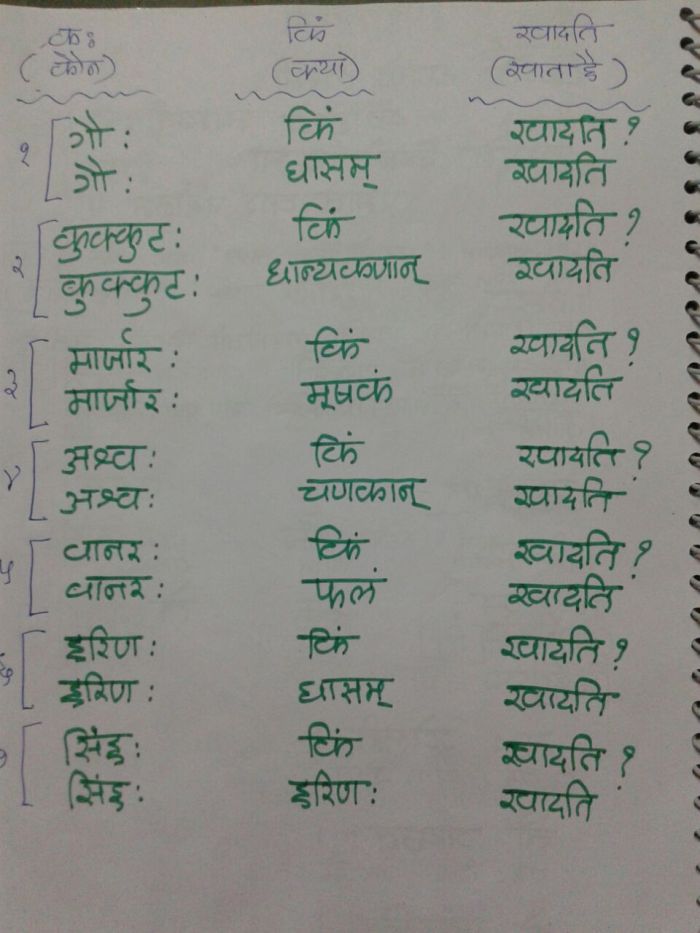 कः किं खादति
(कौन) (क्या) (खाता है)
१ गौः किं खादति?
गौः घासम् खादति
२ कुक्कुटः किं खादति?
कुक्कुटः धान्यकणान् खादति
३ मार्जारः किं खादति?
मार्जारः मूषकं खादति
४ अश्वः किं खादति?
अश्वः चणकान् खादति
५ वानरः किं खादति?
वानरः फलं खादति
६ हरिणः किं खादति?
हरिणः घासम् खादति
७ सिंहः किं खादति?
सिंहः हरिणः खादति